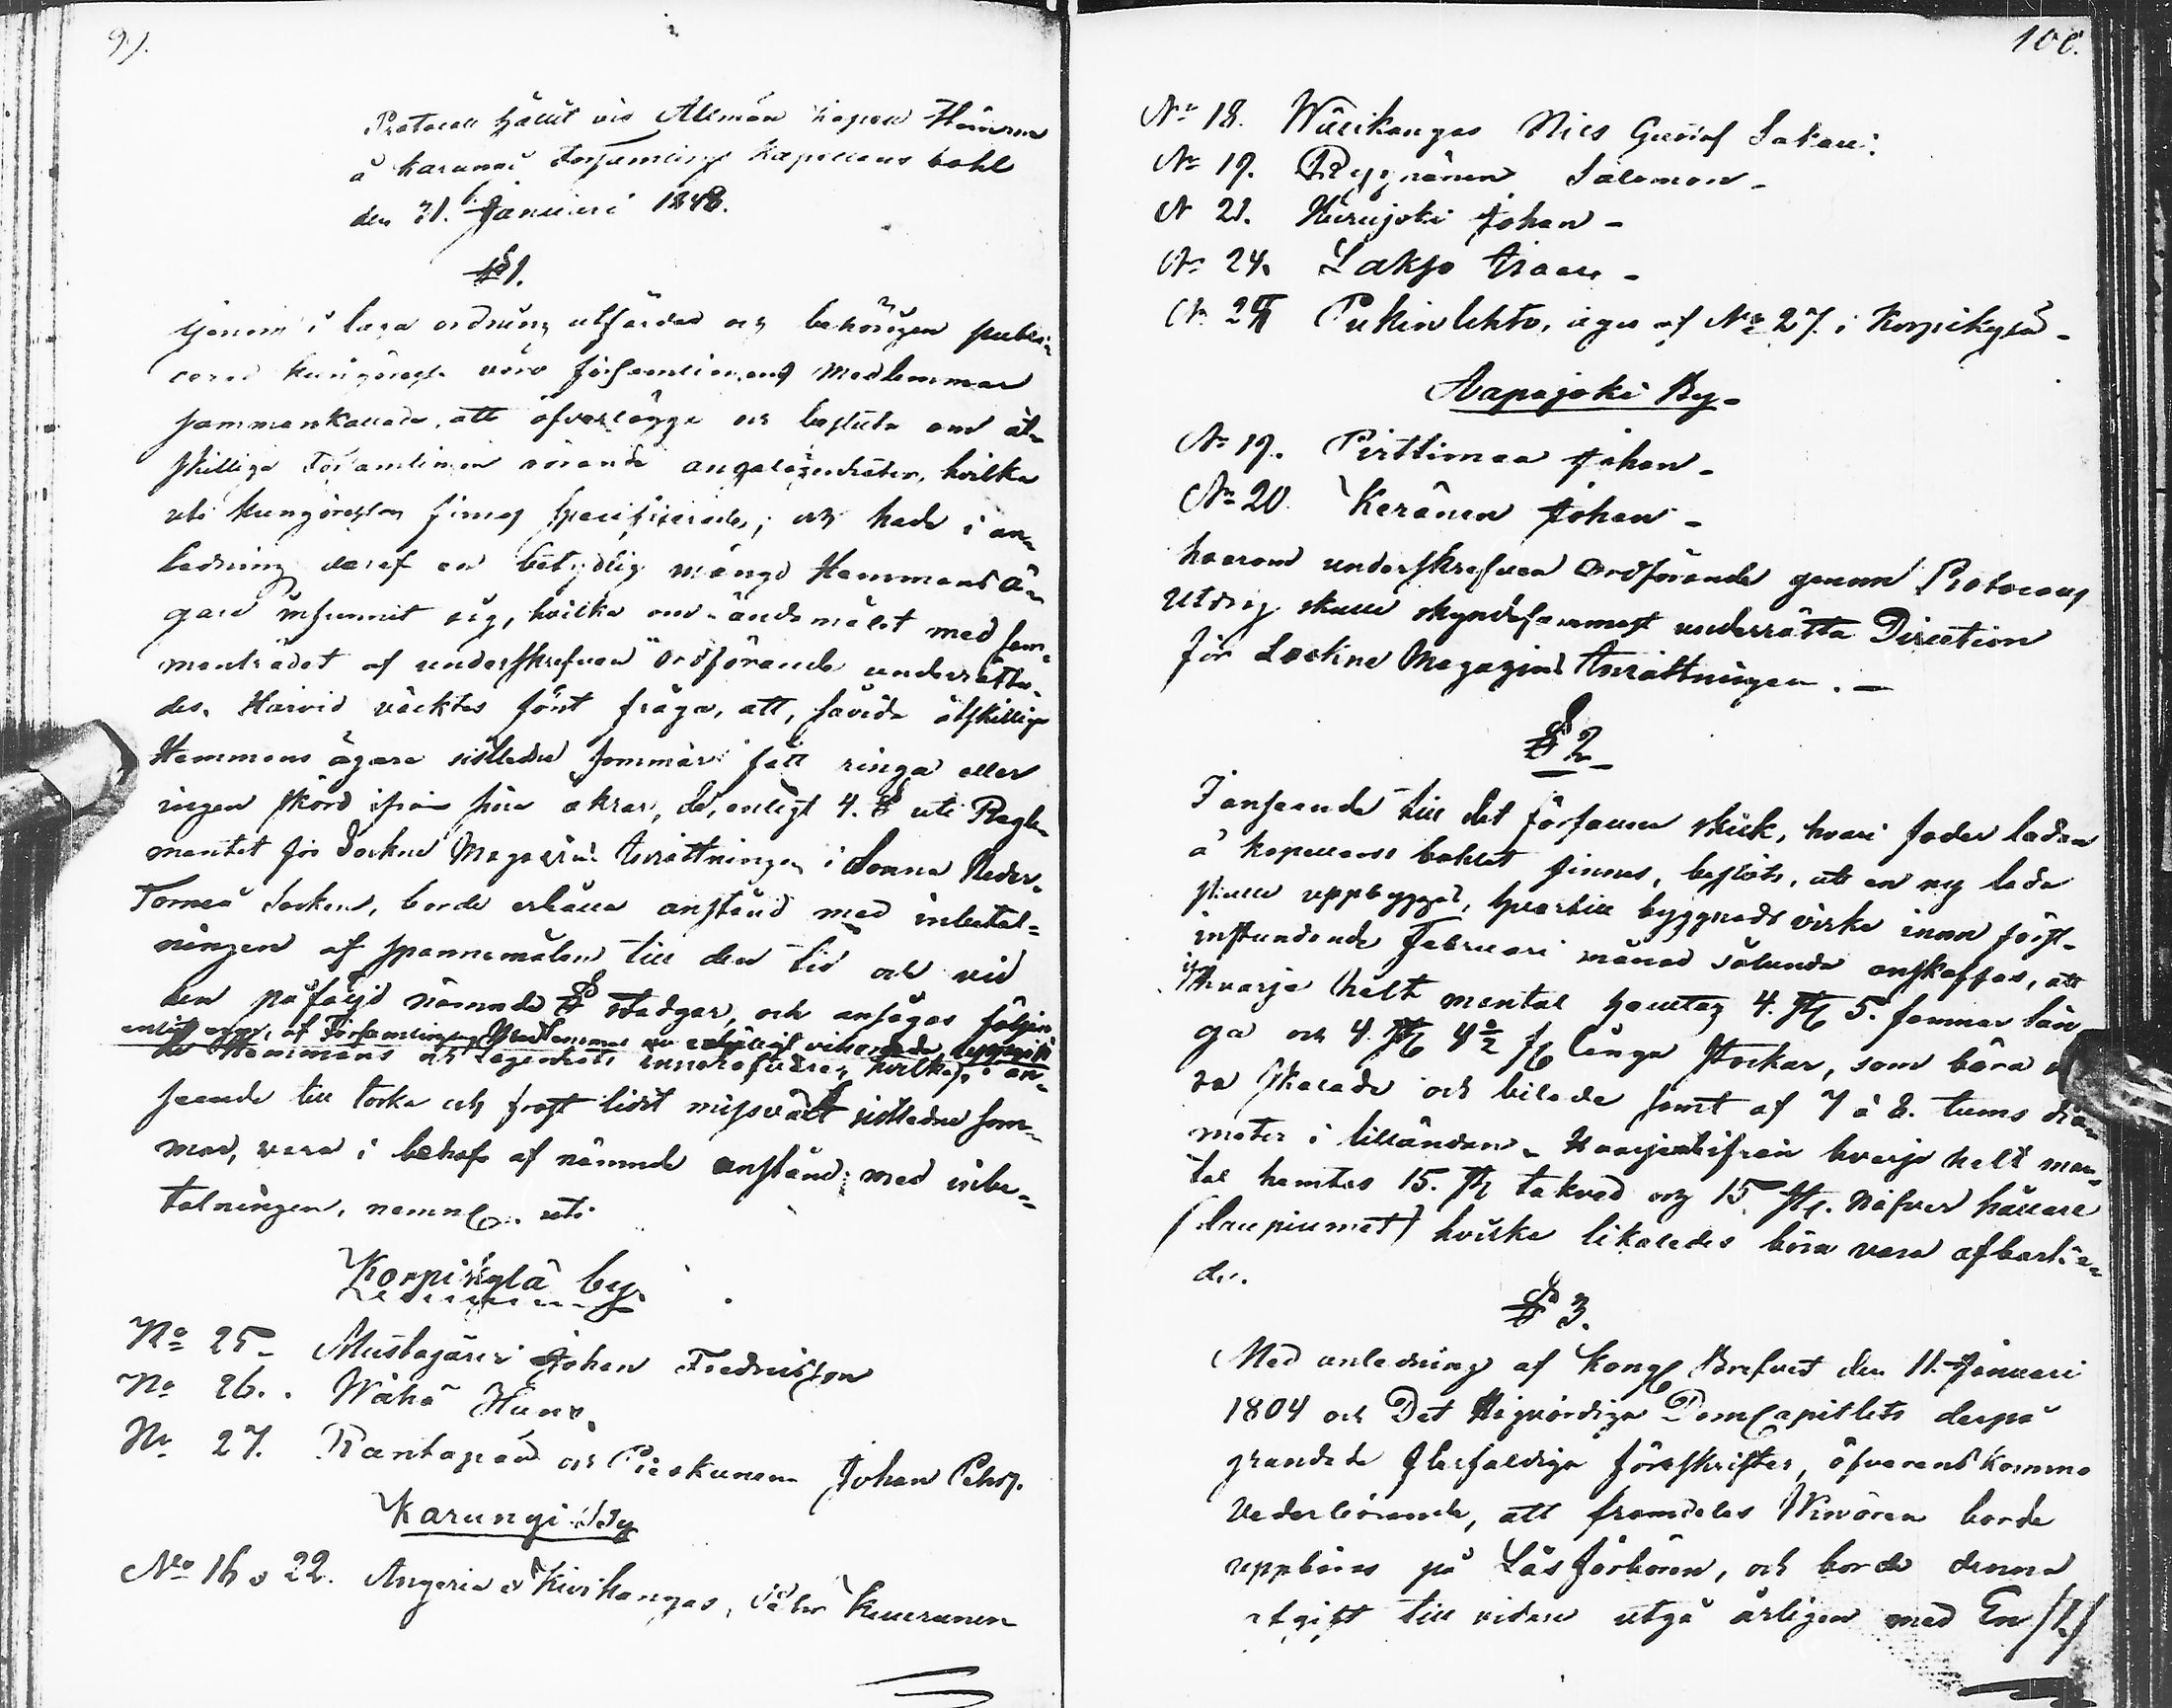 99.
Protocoll hållit vid Allmän Sockne Stämma
å Karungi Församlings Kapellans bohl
den 31. Januari 1848.
§ 1.
Genom i laga ordning utfärdad och behörigen publi-
cerad kungörelse voro församlingens Medlemmar
sammankallade, att öfverlägga och besluta om åt-
skilliga Församlingen rörande angelägenheter, hvilka
uti kungörelsen finnas specificerade; och hade i an-
ledning deraf en betydlig mängd Hemmans ä-
gare infunnit sig, hvilka om ändamålet med sam-
manträdet af underskrefven Ordförande underrätta-
des. Härvid väcktes först fråga, att, såvida åtskillige
Hemmans ägare sistledne sommar fått ringa eller
ingen skörd ifrån sina åkrar, de, enligt 4. § uti Regle-
mentet för Sockne Magazins Inrättningen i denna Neder-
Torneå Socken, borde erhålla anstånd med inbetal=
ningen af spannemålen till den tid och vid
den påföljd nämnde § stadgar, och ansågos följan-
enligt af Församlingens Medlemmar
de Hemmans och Lägenhets innehafvare, hvilka i an-
seende till torka och frost lidit missväxt sistledne som-
mar, vara i behof af nämnde anstånd med inbe-
talningen, nemnl. uti
Korpikylä by.
No 25. Mustajärvi Johan Fredriksson
No 26. Wähä Hans.
No 27. Rantapää och Pieskunen Johan Pehrs.
Karungi By
No 16 o 22. Angeria o Kivikangas, Pehr Kuuranen
100.
No 18. Wälikangas Nils Gustaf Sakari.
No 19. Ryynänen Salomon -
N 21. Hurujoki Johan -
No 24. Lakso Isaac -
N Pukinlehto, äges af No 27. i Korpikylä -
Aapajoki By -
No 19. Pirttimaa Johan -
No 20. Keränen Johan -
hvarom underskrefven Ordförande genom Protocolls
Utdrag skulle skyndsammast underrätta Direction
för Sockne Magazins Inrättningen. -
§ 2.
I anseende till det förfallna skick, hvari foder ladan
å kapellans bohlet finnes, beslöts, att en ny lada
skulle uppbyggas, hvartill byggnads virke innan först-
instundande Februari månad sålunda anskaffas, att
if. hvarje helt mantal hemtas 4. st. 5. famnar lån
ga och 4. st. 4½ f. långa stockar, som böra va
ra skalade och bilade samt af 7 à 8. tums dia-
meter i lilländan. Hvarjemte ifrån hvarje helt man-
tal hemtas 15. st. takved och 15 st. näfver hållare
(laupiumet) hvilka likaledes böra vara afbarka-
de.
§ 3.
Med anledning af Kongl. Brefvet den 11. Januari
1804 och Det Högvördiga DomCapitlets derpå
grundade flerfaldiga föreskrifter, öfverenskommo
Vederbörande, att framdeles Winören borde
uppbäras på Läsförhören, och borde denna
afgift till vidare utgå årligen med En /1./